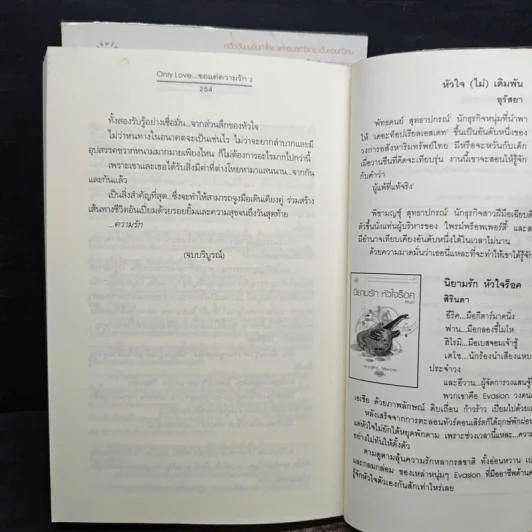 Only Love...ขอแค่ความรัก ง
254
ทั้งสองรับรู้อย่างเชื่อมั่น...จากส่วนลึกของหัวใจ
ไม่ว่าหนทางในอนาคตจะเป็นเช่นไร ไม่ว่าจะยากลำบากและมี
อุปสรรคขวากหนามมากมายเพียงไหน ก็ไม่ต้องการอะไรมากไปกว่านี้
เพราะเขาและเธอได้รับสิ่งมีค่าที่ต่างโหยหามาแสนนาน...จากกัน
และกันแล้ว
เป็นสิ่งสำคัญที่สุด...ซึ่งจะทำให้สามารถจูงมือเดินเคียงคู่ ร่วมสร้าง
เส้นทางชีวิตอันเปี่ยมด้วยรอยยิ้มและความสุขจนถึงวันสุดท้าย
...ความรัก
(จบบริบูรณ์)
หัวใจ (ไม่) เดิมพัน
อุรัสยา
พัทธดนย์ สุทธาปกรณ์ นักธุรกิจหนุ่มที่นำพา
ให้ 'เดอะท็อปเรียลเอสเตท' ขึ้นเป็นอันดับหนึ่งของ
วงการอสังหาริมทรัพย์ไทย มีหรือจะหวั่นกับเด็ก
เมื่อวานซืนที่คิดจะเทียบรุ่น งานนี้เขาจะสอนให้รู้จัก
กับคำว่า
'ผู้แพ้ที่แท้จริง'
พิชามญชุ์ สุทธาปกรณ์ นักธุรกิจสาวฝีมือเฉียบ
ตัวขึ้นนั่งแท่นผู้บริหารของ 'ไพรม์พร็อพเพอร์ตี้' และ
มีอำนาจเทียบเคียงอันดับหนึ่งได้ในเวลาไม่นาน
ด้วยความมาดมั่นว่าเธอนี่แหละที่จะทำให้เขาได้รู้จัก
นิยามรัก หัวใจร็อค
สิรินดา
นิยามรัก หัวใจร็อค
สิรินดา
อีริค...มือกีตาร์มาดนิ่ง
ฟาน...มือกลองขี้โมโห
ฮิโรมิ...มือเบสจอมเจ้าชู้
เตโซ...นักร้องนำเสียงแหบ
ประจำวง
และอีวาน...ผู้จัดการวงแสน
พวกเขาคือ Evasion วงดน
เอเชีย ด้วยภาพลักษณ์ ดิบเถื่อน ก้าวร้าว เปี่ยมไปด้วย
หลังเสร็จจากการตะลอนทัวร์คอนเสิร์ตก็ได้ฤกษ์พักผ่อน
แต่หัวใจไม่ยักได้หยุดพักตาม เพราะช่วงเวลานี้แหละ...ความ
อย่างไม่ทันให้ตั้งตัว
ตามดูตามลุ้นความรักหลากรสชาติ ทั้งอ่อนหวาน
และกลมกล่อม ของเหล่าหนุ่มๆ Evasion ที่มืออาชีพด้าน
รู้จักหัวใจตัวเองกันสักเท่าไหร่เลย